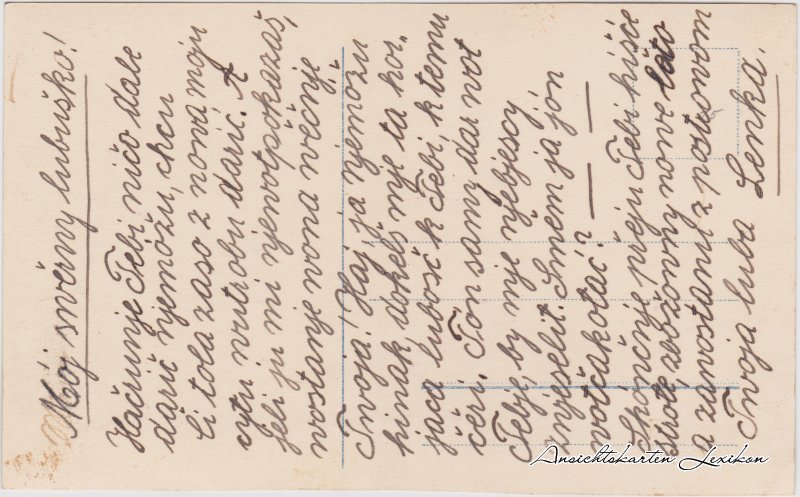 Mój swěrny lubuško!
Hačrunje Tebi ničo dale
darić njemóžu, chcu
Ći tola zaso z nowa moju
cyłu wutrobu darić. A
jeli ju mi njewotpokazaš,
wostanje wona wěčnje
Twoja! Haj, ja njemóžu
hinak dokelž mje ta hor-
jaca lubosć k Tebi, k temu
ćěri. Ton samy dar wot
Tebje by mje njebjescy
zwjeselił. Směm ja jón
wočakować? — —
Skónčnje přeju Tebi hišće
zbožowny nowe lěto
a zawostanu z postrowom
Twoja luba Lenka.
Ansichtskarten Lexikon